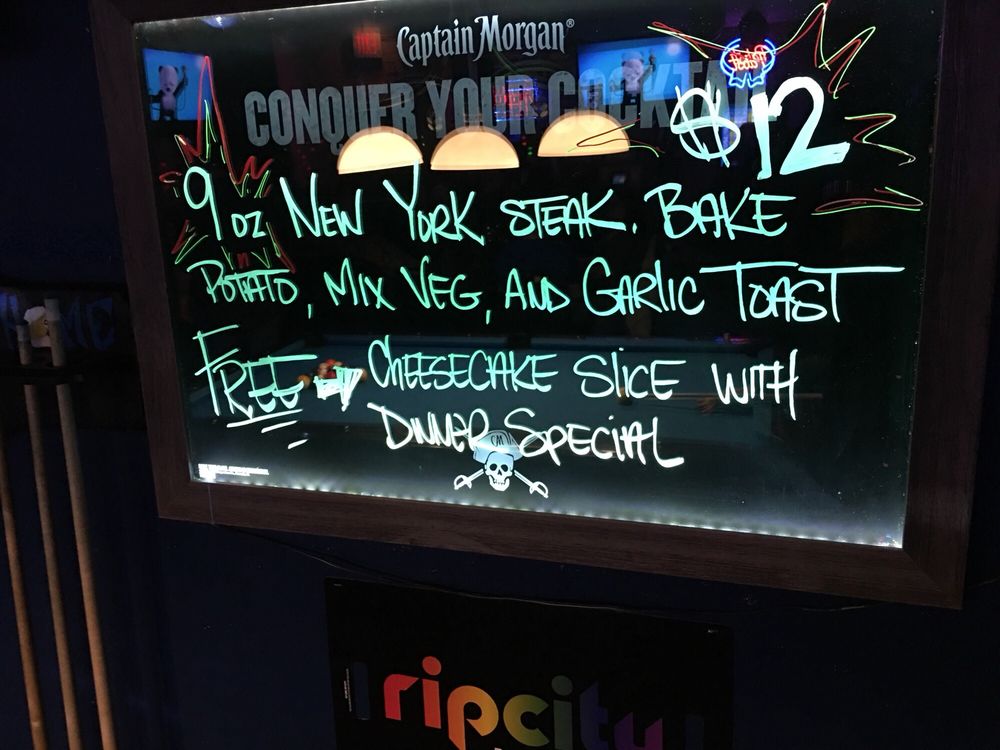 Captain Morgan®
CONQUER YOUR COCKTAIL
$12
9 oz NEW YORK STEAK. BAKE
POTATO, MIX VEG, AND GARLIC TOAST
FREE CHEESECAKE SLICE WITH
DINNER SPECIAL
CM
ripcity